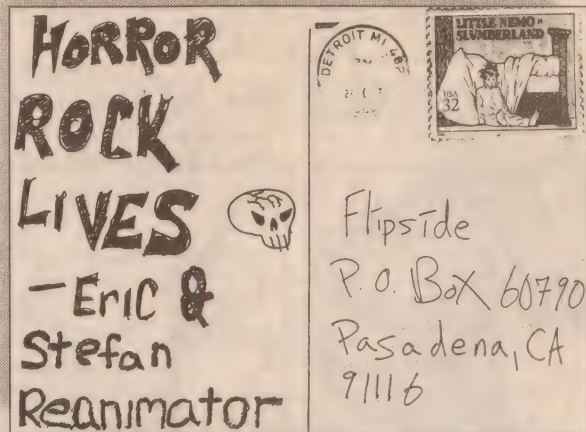 HORROR
ROCK
LIVES
- Eric &
Stefan
Reanimator
DETROIT MI
LITTLE NEMO in
SLUMBERLAND
USA
32
Flipside
P.O. Box 60790
Pasadena, CA
91116